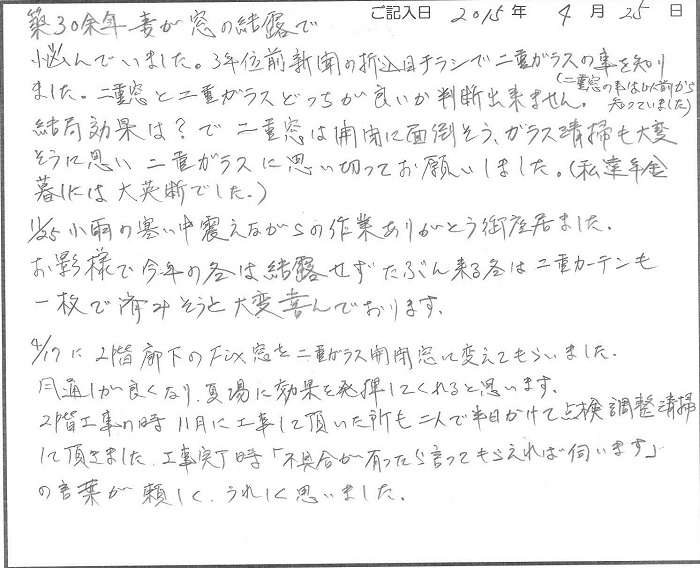 ご記入日 2015年 4月 25日
築30余年 妻が窓の結露で
悩んでいました。3年位前新聞の折込チラシで二重ガラスの事を知り
ました。二重窓と二重ガラスどっちが良いか判断出来ません。(二重窓の事は以前から知っていました)
結局効果は？で二重窓は開閉に面倒そう、ガラス清掃も大変
そうに思い二重ガラスに思い切ってお願いしました。(私達年金
暮しには大英断でした。)
11/25小雨の寒い中震えながらの作業ありがとう御座居ました。
お影様で今年の冬は結露せずたぶん来る冬は二重カーテンも
一枚で済みそうと大変喜んでおります。
4/17に2階廊下のFix窓を二重ガラス開閉窓に変えてもらいました。
風通しが良くなり、夏場に効果を発揮してくれると思います。
2階工事の時11月に工事して頂いた所も二人で半日かけて点検調整清掃
して頂きました。工事完了時「不具合が有ったら言ってもらえれば伺います」
の言葉が頼しく、うれしく思いました。